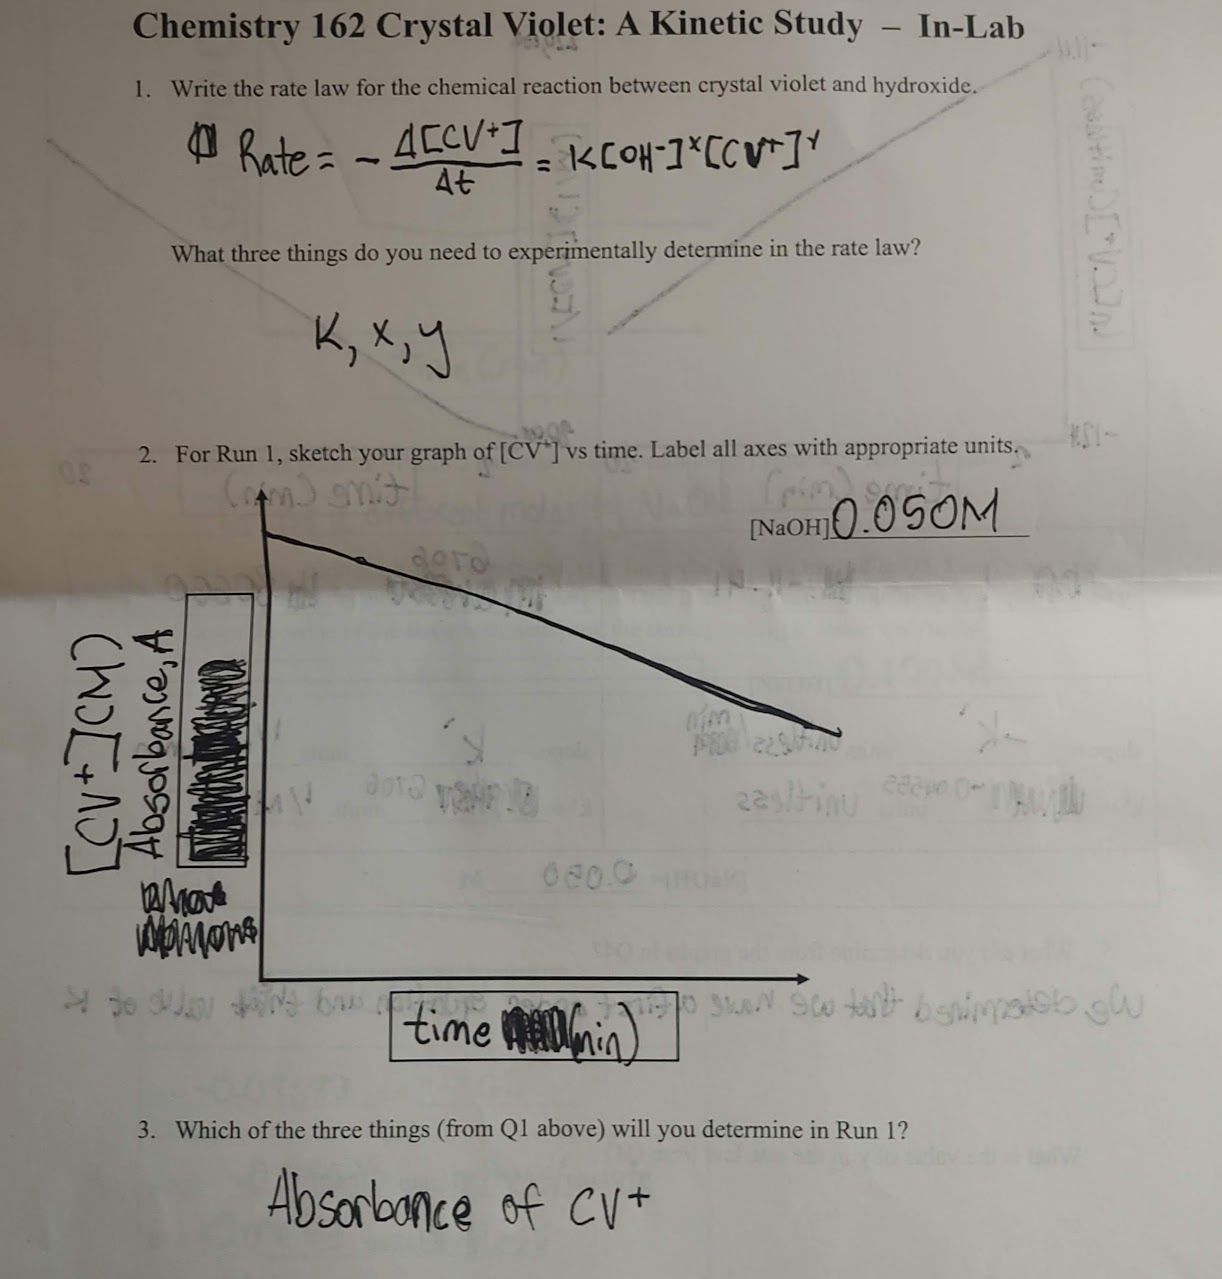 Chemistry 162 Crystal Violet: A Kinetic Study – In-Lab
1. Write the rate law for the chemical reaction between crystal violet and hydroxide.
Rate = - Δ[CV+]/Δt = K[OH-]^x[CV+]^y
What three things do you need to experimentally determine in the rate law?
K, x, y
2. For Run 1, sketch your graph of [CV+] vs time. Label all axes with appropriate units.
[NaOH] 0.050M
[CV+](M)
Absorbance, A
time (min)
3. Which of the three things (from Q1 above) will you determine in Run 1?
Absorbance of CV+